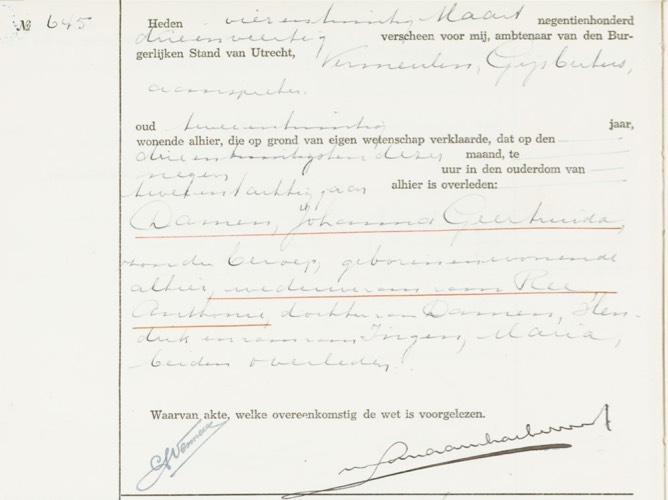 № 645
Heden vierentwintig Maart negentienhonderd
drieenveertig verscheen voor mij, ambtenaar van den Bur-
gerlijken Stand van Utrecht, Vermeulen, Gijsbertus,
aanspreker
oud tweeentwintig jaar,
wonende alhier, die op grond van eigen wetenschap verklaarde, dat op den
drieentwintigsten dezer maand, te
negen uur in den ouderdom van
tweeentachtig jaar alhier is overleden:
Damen, Johanna Geertruida,
zonder beroep, geboren en wonende
alhier, weduwe van van Ree
Anthonie, dochter van Damen, Hen-
drik en van van Jingen, Maria,
beiden overleden.
Waarvan akte, welke overeenkomstig de wet is voorgelezen.
GVermeulen